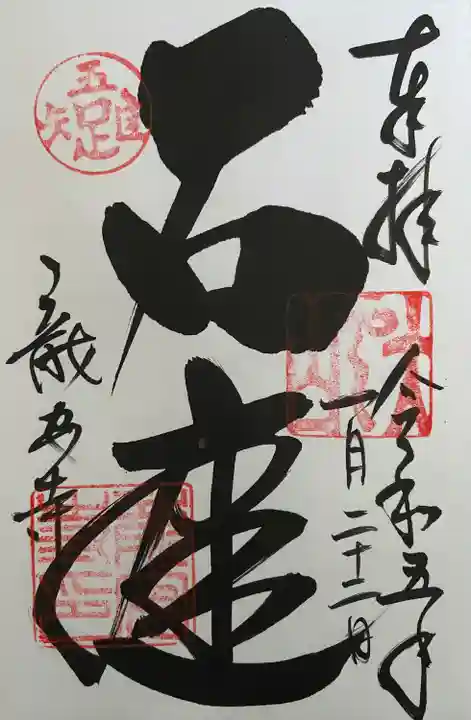 奉拝
令和五年
一月二十二日
石庭
吾唯足知
龍安寺